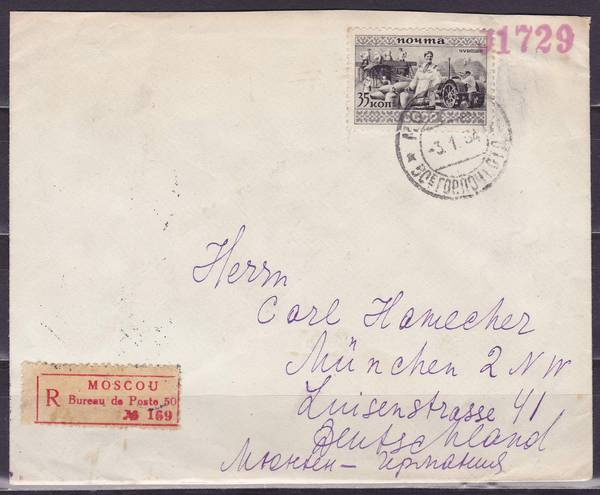 почта
ЧУВАШИ
35 коп
1729
-3.1.34
Herrn
Carl Hamecher
München 2 NW
Luisenstrasse 41
Deutschland
Мюнхен - Германия
MOSCOU
R Bureau de Poste 50
№ 169